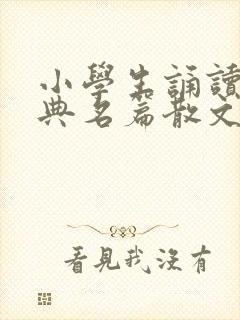 小學生誦讀
典名篇散文
看見我沒有